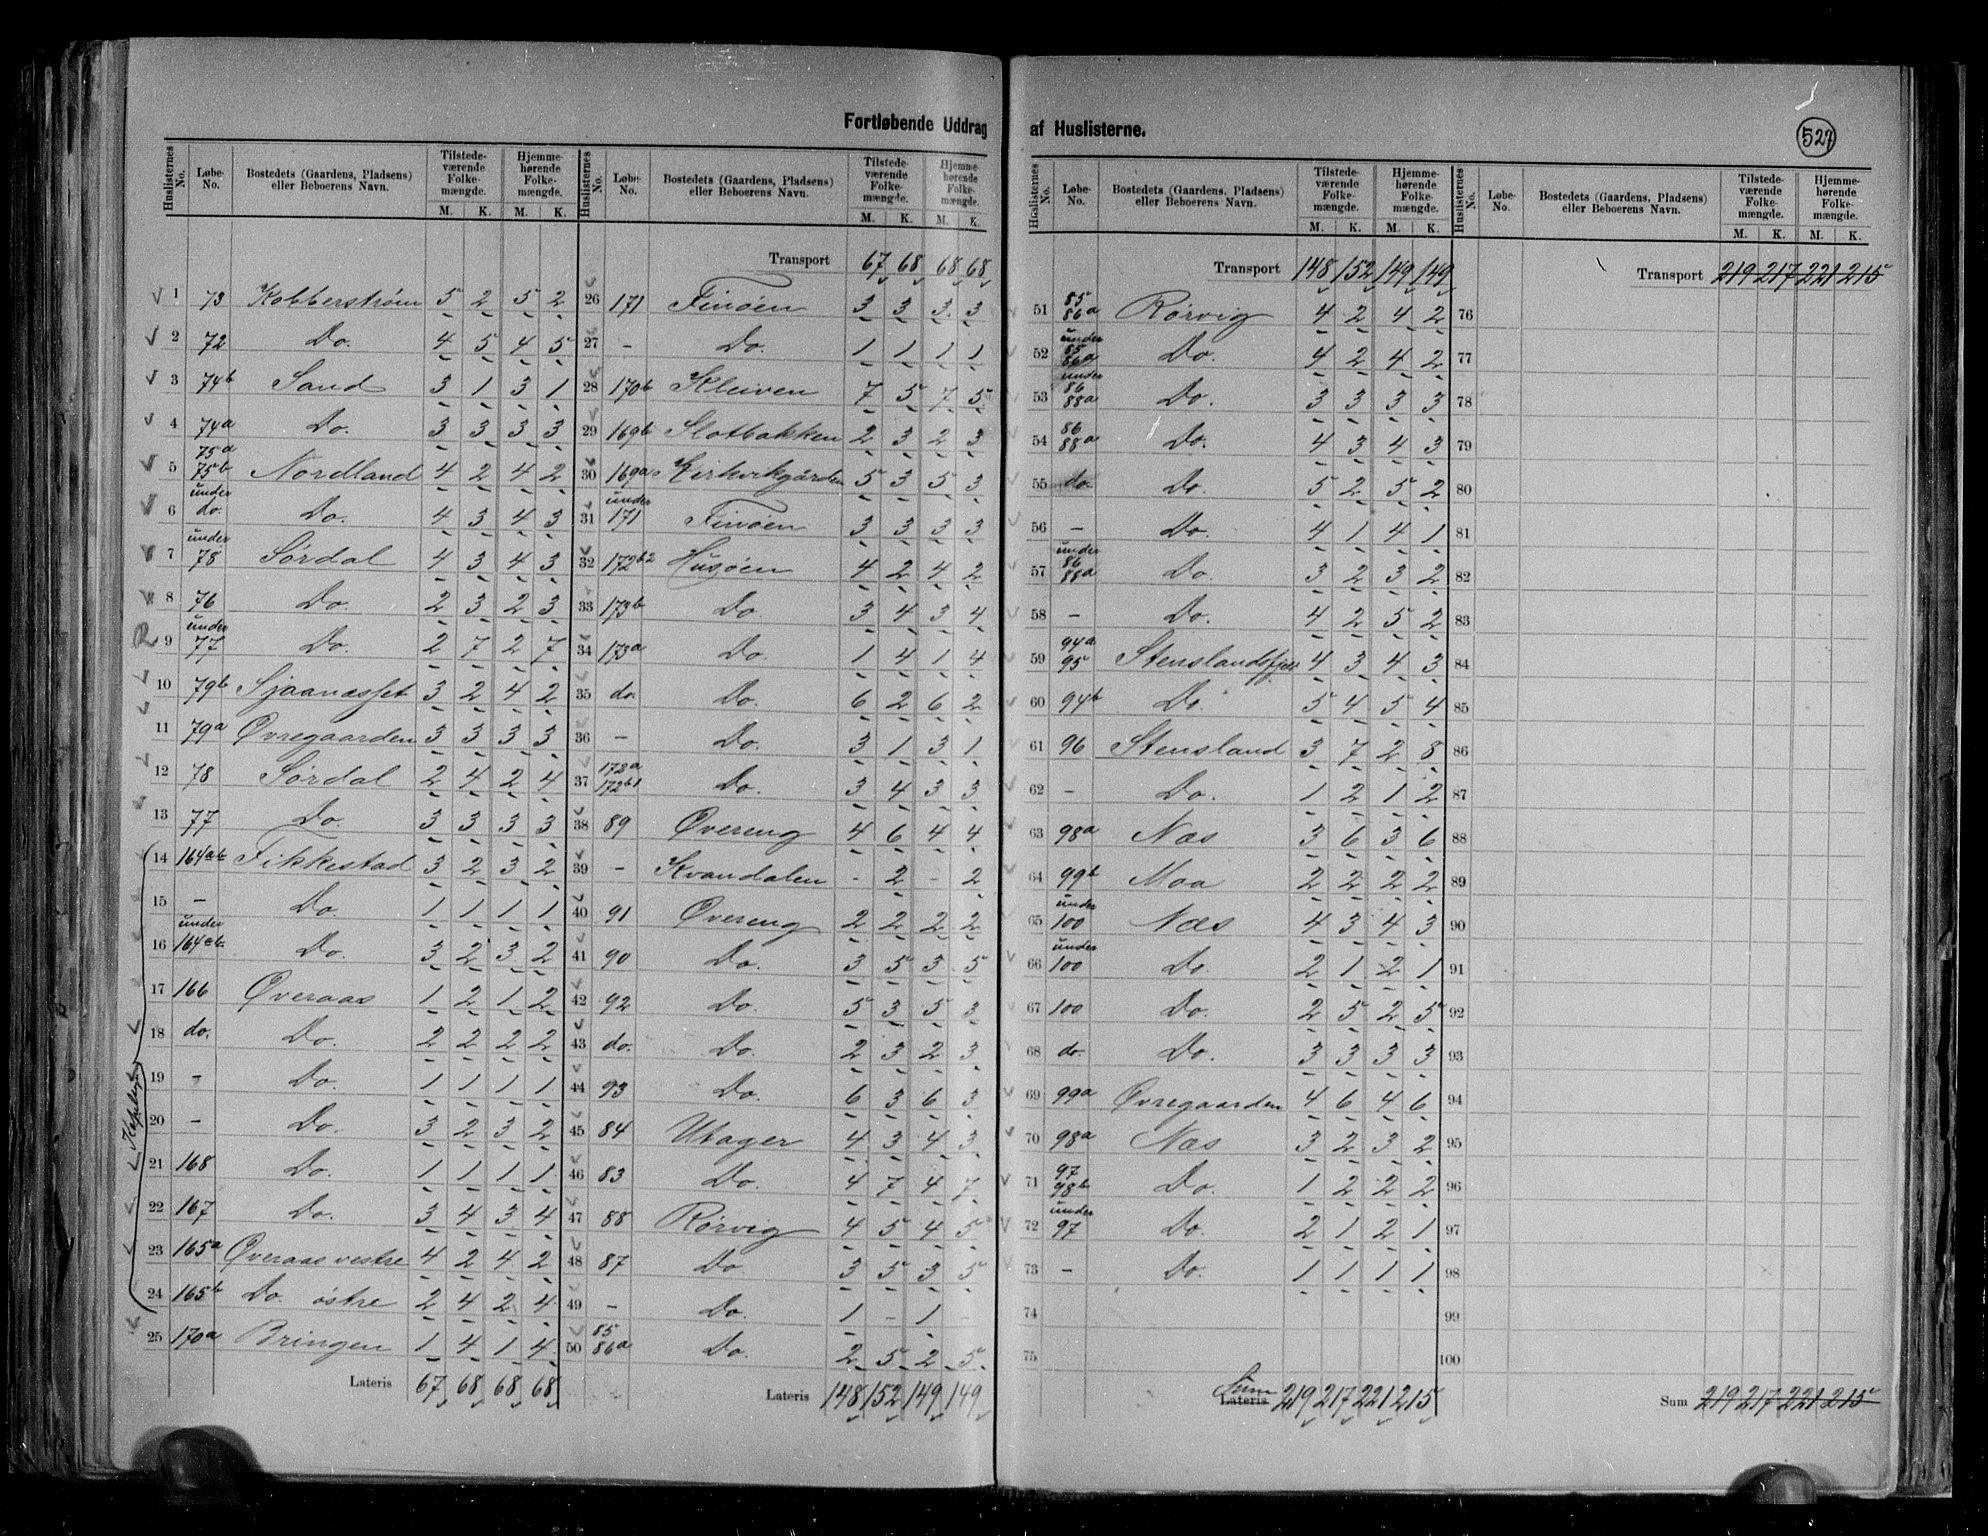 527
Fortløbende Uddrag af Huslisterne.
Huslisternes No. Løbe-No. Bostedets (Gaardens, Pladsens) eller Beboerens Navn. Tilstede-værende Folke-mængde. Hjemme-hørende Folke-mængde.
M. K. M. K.
1 73 Kobberstrøm 5 2 5 2
2 72 Do. 4 5 4 5
3 74b Sand 3 1 3 1
4 74a Do. 3 3 3 3
5 75a 75b Nordland 4 2 4 2
6 under do. Do. 4 3 4 3
7 under 78 Sørdal 4 3 4 3
8 76 Do. 2 3 2 3
9 under 77 Do. 2 7 2 7
10 79b Sjaanæsset 3 2 4 2
11 79a Øvregaarden 3 3 3 3
12 78 Sørdal 2 4 2 4
13 77 Do. 3 3 3 3
14 164a-b Fikkestad 3 2 3 2
15 - Do. 1 1 1 1
16 under 164a-b Do. 3 2 3 2
17 166 Øveraas 1 2 1 2
18 do. Do. 2 2 2 2
19 - Do. 1 1 1 1
20 - Do. 3 2 3 2
21 168 Do. 1 1 1 1
22 167 Do. 3 4 3 4
23 165a Øveraas vestre 4 2 4 2
24 165b Do. østre 2 4 2 4
25 170a Bringen 1 4 1 4
Lateris 67 68 68 68
Huslisternes No. Løbe-No. Bostedets (Gaardens, Pladsens) eller Beboerens Navn. Tilstede-værende Folke-mængde. Hjemme-hørende Folke-mængde.
M. K. M. K.
Transport 67 68 68 68
26 171 Finøen 3 3 3 3
27 - Do. 1 1 1 1
28 170b Kleiven 7 5 7 5
29 169b Slotbakken 2 3 2 3
30 169a Kirkvikgården 5 3 5 3
31 under 171 Finøen 3 3 3 3
32 172b2 Husøen 4 2 4 2
33 173b Do 3 4 3 4
34 173a Do. 1 4 1 4
35 do. Do. 6 2 6 2
36 - Do. 3 1 3 1
37 172a 172b1 Do. 3 4 3 3
38 89 Øvereng 4 6 4 4
39 - Kvandalen - 2 - 2
40 91 Øvereng 2 2 2 2
41 90 Do. 3 5 3 5
42 92 Do. 5 3 5 3
43 do. Do. 2 3 2 3
44 93 Do. 6 3 6 3
45 84 Utager 4 3 4 3
46 83 Do. 4 7 4 7
47 88 Rørvig 4 5 4 5
48 87 Do 3 5 3 5
49 - Do. 1 - 1 -
50 85 86a Do. 2 5 2 5
Lateris 148 152 149 149
Huslisternes No. Løbe-No. Bostedets (Gaardens, Pladsens) eller Beboerens Navn. Tilstede-værende Folke-mængde. Hjemme-hørende Folke-mængde.
M. K. M. K.
Transport 148 152 149 149
51 85 86a Rørvig 4 2 4 2
52 under 85 86a Do. 4 2 4 2
53 under 86 88a Do. 3 3 3 3
54 86 88a Do. 4 3 4 3
55 do. Do. 5 2 5 2
56 - Do. 4 1 4 1
57 under 86 88a Do. 3 2 3 2
58 - Do. 4 2 5 2
59 94a 95 Stenslandsfjell 4 3 4 3
60 94b Do 5 4 5 4
61 96 Stensland 3 7 2 8
62 - Do. 1 2 1 2
63 98a Næs 3 6 3 6
64 99b Moa 2 2 2 2
65 under 100 Næs 4 3 4 3
66 under 100 Do. 2 1 2 1
67 100 Do. 2 5 2 5
68 do. Do. 3 3 3 3
69 99a Øvregaarden 4 6 4 6
70 98a Næs 3 2 3 2
71 97 98b Do. 1 2 2 2
72 under 97 Do. 2 1 2 1
73 - Do. 1 1 1 1
74
75
Sum Lateris 219 217 221 215
Huslisternes No. Løbe-No. Bostedets (Gaardens, Pladsens) eller Beboerens Navn. Tilstede-værende Folke-mængde. Hjemme-hørende Folke-mængde.
M. K. M. K.
Transport 219 217 221 215
76
77
78
79
80
81
82
83
84
85
86
87
88
89
90
91
92
93
94
95
96
97
98
99
100
Sum 219 217 221 215